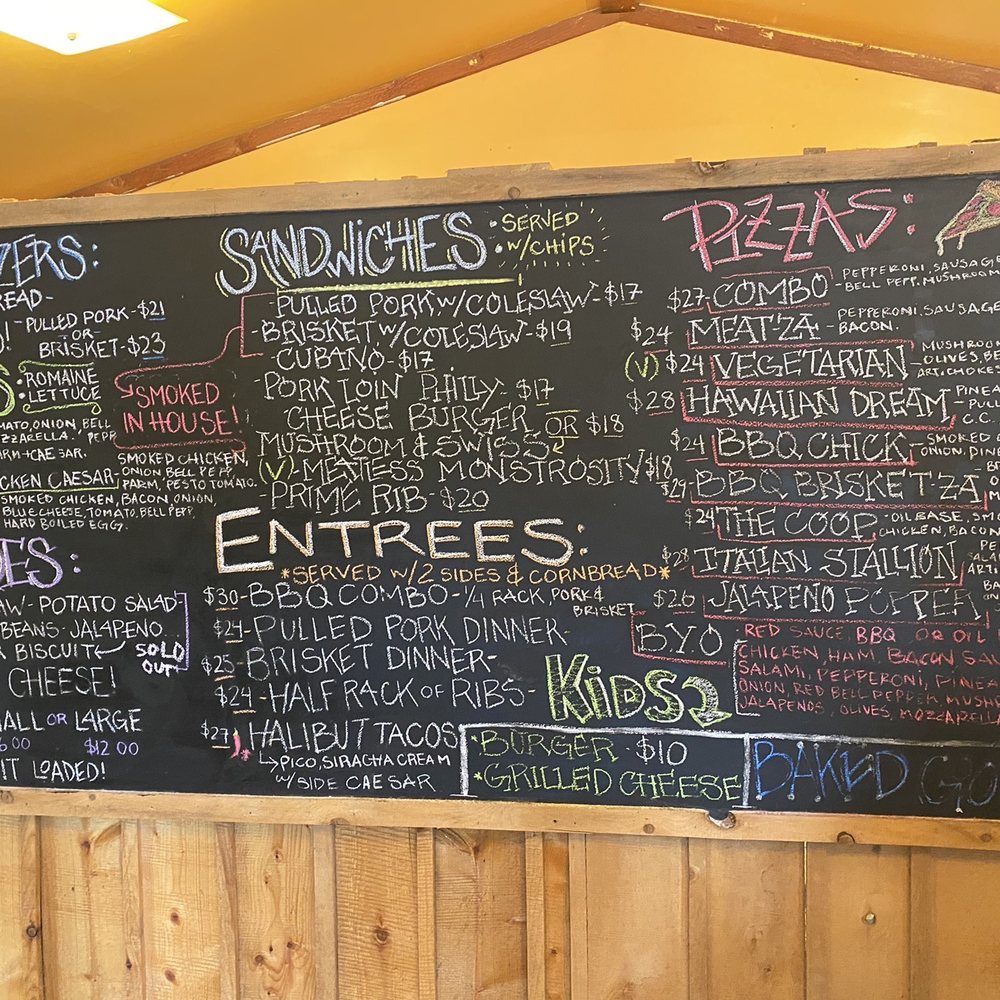 ZERS:
READ-
-PULLED PORK-$21
OR-
BRISKET-$23
ROMAINE
LETTUCE
SMOKED
IN HOUSE!
MATO, ONION, BELL
ZZARELLA. PEPP
ARM+CAESAR.
CKEN CAESAR
SMOKED CHICKEN,
ONION BELL PEPP,
PARM, PESTO TOMATO.
SMOKED CHICKEN, BACON, ONION,
BLUE CHEESE, TOMATO, BELL PEPP,
HARD BOILED EGG.
DES:
AW-POTATO SALAD-
BEANS-JALAPENO
R BISCUIT
SOLD
OUT
CHEESE!
MALL OR LARGE
6.00 $12.00
IT LOADED!
SANDWICHES: SERVED
W/CHIPS
PULLED PORK W/COLESLAW-$17
BRISKET W/COLESLAW-$19
CUBANO-$17
-PORK LOIN PHILLY-$17
CHEESE BURGER OR $18
MUSHROOM & SWISS
(V)-MEATLESS MONSTROSITY $18
-PRIME RIB-$20
ENTREES:
*SERVED W/2 SIDES & CORNBREAD*
$30-BBQ COMBO-1/4 RACK, PORK &
BRISKET
$24-PULLED PORK DINNER
$25-BRISKET DINNER-
$24-HALF RACK OF RIBS-
$27 HALIBUT TACOS
PICO, SIRACHA CREAM
W/SIDE CAESAR
KIDS
*BURGER-$10
*GRILLED CHEESE
BAKED GO
PIZZAS:
$27-COMBO PEPPERONI, SAUSAGE
BELL PEPP, MUSHROOM
$24 MEAT'ZA PEPPERONI, SAUSAGE
-BACON.
(V) $24 VEGETARIAN MUSHROOM
OLIVES, BE
ARTICHOKES
$28 HAWAIIAN DREAM- PINEA
PULL
C.C
$24 BBQ CHICK-SMOKED C
ONION, PINE
$29 BBQ BRISKET-ZA
$24 THE COOP-OIL BASE, SM
CHICKEN, BACON
$28 ITALIAN STALLION
$26 JALAPENO POPPER
B.Y.O
RED SAUCE, BBQ OR OIL
CHICKEN, HAM, BACON SAU
SALAMI, PEPPERONI, PINEA
ONION, RED BELL PEPPER, MUSH
JALAPENOS, OLIVES, MOZZARELLA